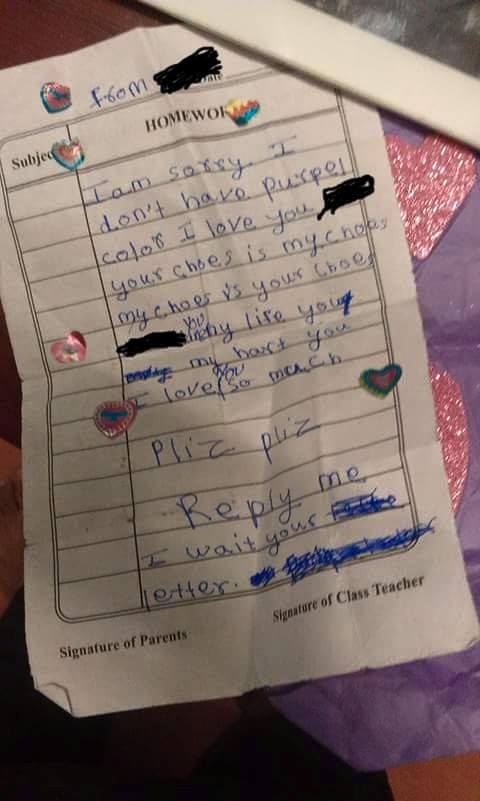 From
Date
HOMEWOR
Subjec
I am sorry. I
don't have purpel
color I love you
your choes is my choes
my choes is your choes
you
in my life you
my hart you
you
I love so much
Pliz pliz
Reply me
I wait your
letter.
Signature of Parents
Signature of Class Teacher